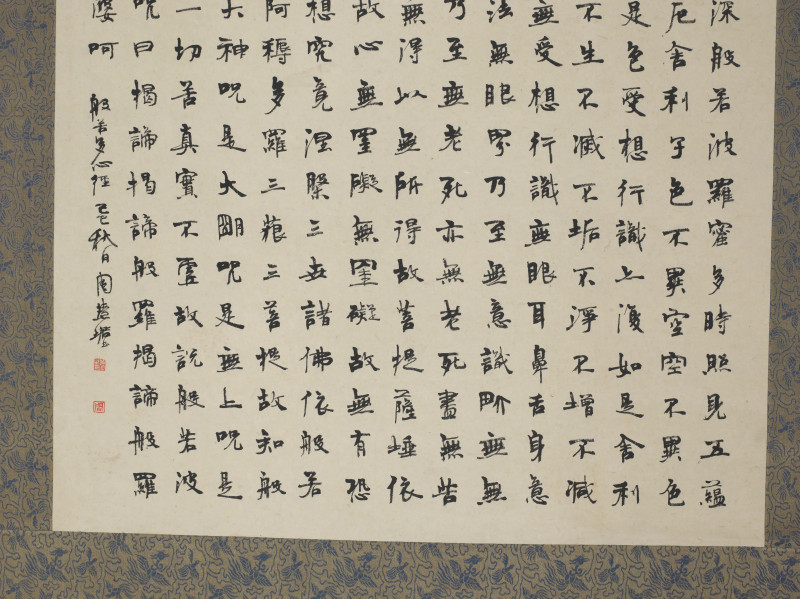 深般若波羅蜜多時照見五蘊
厄舍利子色不異空空不異色
是色受想行識亦復如是舍利
不生不滅不垢不淨不增不減
無受想行識無眼耳鼻舌身意
法無眼界乃至無意識界無無
乃至無老死亦無老死盡無苦
無得以無所得故菩提薩埵依
故心無罣礙無罣礙故無有恐
想究竟涅槃三世諸佛依般若
阿耨多羅三藐三菩提故知般
大神咒是大明咒是無上咒是
一切苦真實不虛故說般若波
咒曰揭諦揭諦般羅揭諦般羅
婆呵
般若多心經 秋日